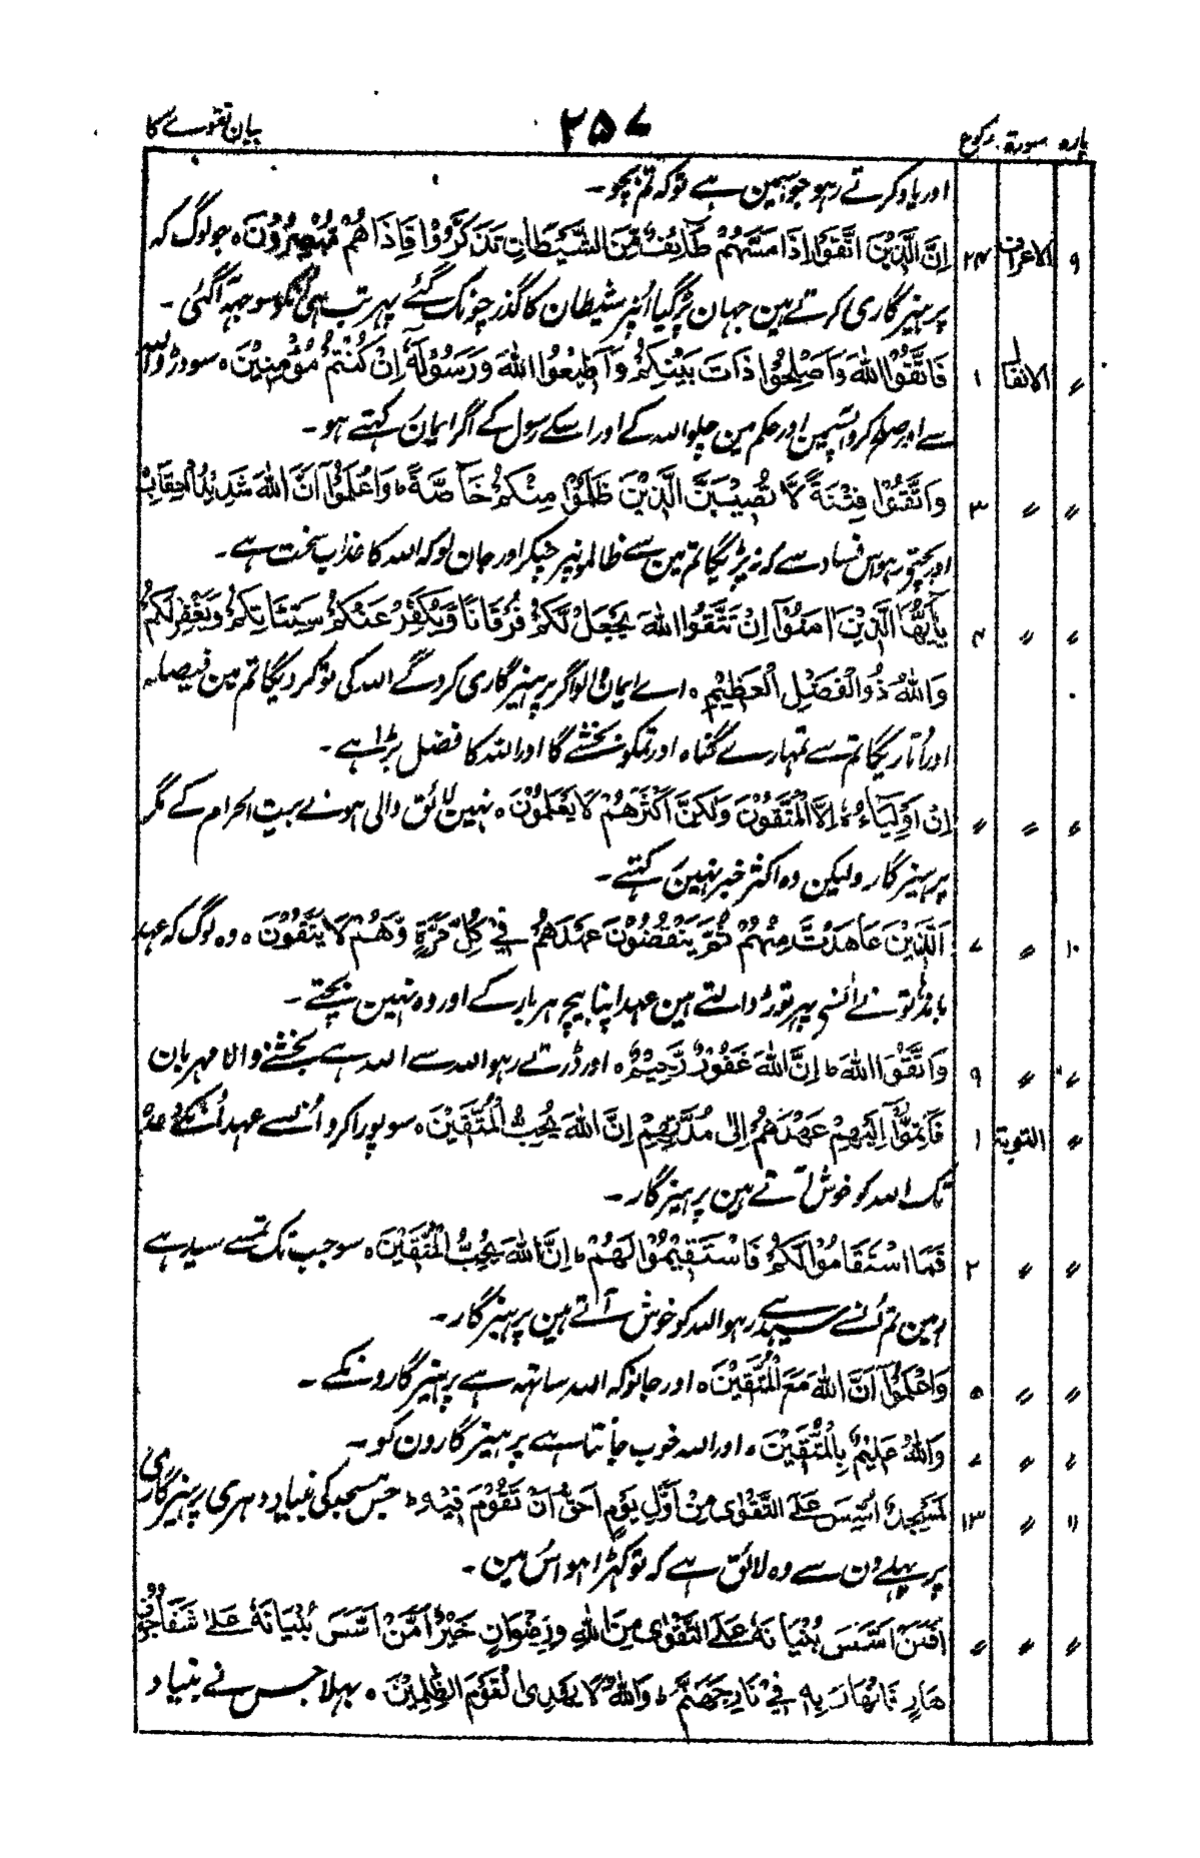 پارہ سورۃ رکوع ۲۵۷ بیان تقوے کا
اور یاد کرتے رہو جو اسمین ہے تو کہ تم بچو۔
۹ الاعراف ۲۴ اِنَّ الَّذِیْنَ اتَّقَوْا اِذَا مَسَّهُمْ طٰٓائِفٌ مِّنَ الشَّیْطَانِ تَذَكَّرُوْا فَاِذَا هُمْ مُّبْصِرُوْنَ ہ جو لوگ کہ
پرہیزگاری کرتے ہین جہان پڑگیا اُنپر شیطان کا گذر چونک گئے پہر تب ہی انکو سوجہہ آگئی۔
〃 الانفال ۱ فَاتَّقُوا اللّٰهَ وَاَصْلِحُوْا ذَاتَ بَیْنِكُمْ وَاَطِیْعُوا اللّٰهَ وَرَسُوْلَهٗٓ اِنْ كُنْتُمْ مُّؤْمِنِیْنَ ہ سو ڈرو اللہ
سے اور صلح کرو آپسمین اور حکم مین چلو اللہ کے اور اسکے رسول کے اگر ایمان رکہتے ہو۔
〃 〃 ۳ وَاتَّقُوْا فِتْنَةً لَّا تُصِیْبَنَّ الَّذِیْنَ ظَلَمُوْا مِنْكُمْ خَآصَّةً ط وَاعْلَمُوْٓا اَنَّ اللّٰهَ شَدِیْدُ الْعِقَابِ
اور بچتے رہو اس فساد سے کہ نہ پڑیگا تم مین سے ظالمونپر چنکر اور جان لو کہ اللہ کا عذاب سخت ہے۔
〃 〃 ۴ یٰٓاَیُّهَا الَّذِیْنَ اٰمَنُوْٓا اِنْ تَتَّقُوا اللّٰهَ یَجْعَلْ لَّكُمْ فُرْقَانًا وَّیُكَفِّرْ عَنْكُمْ سَیِّئَاتِكُمْ وَیَغْفِرْ لَكُمْ
وَاللّٰهُ ذُوالْفَضْلِ الْعَظِیْمِ ہ اے ایمان والو اگر پرہیزگاری کروگے اللہ کی تو کر دیگا تم مین فیصلہ
اور اُتاریگا تم سے تمہارے گناہ اور تمکو بخشے گا اور اللہ کا فضل بڑا ہے۔
〃 〃 〃 اِنْ اَوْلِیَآءُهٗٓ اِلَّا الْمُتَّقُوْنَ وَلٰكِنَّ اَكْثَرَهُمْ لَا یَعْلَمُوْنَ ہ نہین لائق والی ہونے بیت الحرام کے مگر
پرہیزگار ولیکن وہ اکثر خبر نہین رکہتے۔
۱۰ 〃 ۷ اَلَّذِیْنَ عَاهَدْتَّ مِنْهُمْ ثُمَّ یَنْقُضُوْنَ عَهْدَهُمْ فِیْ كُلِّ مَرَّةٍ وَّهُمْ لَا یَتَّقُوْنَ ہ وہ لوگ کہ عہد
باندہا تونے اُنسے پہر توڑ ڈالتے ہین عہد اپنا بیچ ہر بار کے اور وہ نہین بچتے۔
〃 〃 ۹ وَاتَّقُوا اللّٰهَ ط اِنَّ اللّٰهَ غَفُوْرٌ رَّحِیْمٌ ہ اور ڈرتے رہو اللہ سے اللہ ہے بخشنے والا مہربان
〃 التوبۃ ۱ فَاَتِمُّوْٓا اِلَیْهِمْ عَهْدَهُمْ اِلٰى مُدَّتِهِمْ اِنَّ اللّٰهَ یُحِبُّ الْمُتَّقِیْنَ ہ سو پورا کرو اُنسے عہد اُنکے وعدہ
تک اللہ کو خوش آتے ہین پرہیزگار۔
〃 〃 ۲ فَمَا اسْتَقَامُوْا لَكُمْ فَاسْتَقِیْمُوْا لَهُمْ ط اِنَّ اللّٰهَ یُحِبُّ الْمُتَّقِیْنَ ہ سو جب تک تمسے سیدہے
رہین تم اُنسے سیدہے رہو اللہ کو خوش آتے ہین پرہیزگار۔
〃 〃 ۵ وَاعْلَمُوْٓا اَنَّ اللّٰهَ مَعَ الْمُتَّقِیْنَ ہ اور جانو کہ اللہ ساتہہ ہے پرہیزگارونکے۔
〃 〃 ۷ وَاللّٰهُ عَلِیْمٌ بِالْمُتَّقِیْنَ ہ اور اللہ خوب جانتا ہے پرہیزگارون کو۔
۱۱ 〃 ۱۳ لَمَسْجِدٌ اُسِّسَ عَلَى التَّقْوٰى مِنْ اَوَّلِ یَوْمٍ اَحَقُّ اَنْ تَقُوْمَ فِیْهِ ط جس مسجد کی بنیاد دہری پرہیزگاری
پر پہلے دن سے وہ لائق ہے کہ تو کہڑا ہو اس مین۔
〃 〃 〃 اَفَمَنْ اَسَّسَ بُنْیَانَهٗ عَلَى التَّقْوٰى مِنَ اللّٰهِ وَرِضْوَانٍ خَیْرٌ اَمْ مَّنْ اَسَّسَ بُنْیَانَهٗ عَلٰى شَفَا جُرُفٍ
هَارٍ فَانْهَارَ بِهٖ فِیْ نَارِ جَهَنَّمَ ط وَاللّٰهُ لَا یَهْدِی الْقَوْمَ الظّٰلِمِیْنَ ہ بہلا جس نے بنیاد